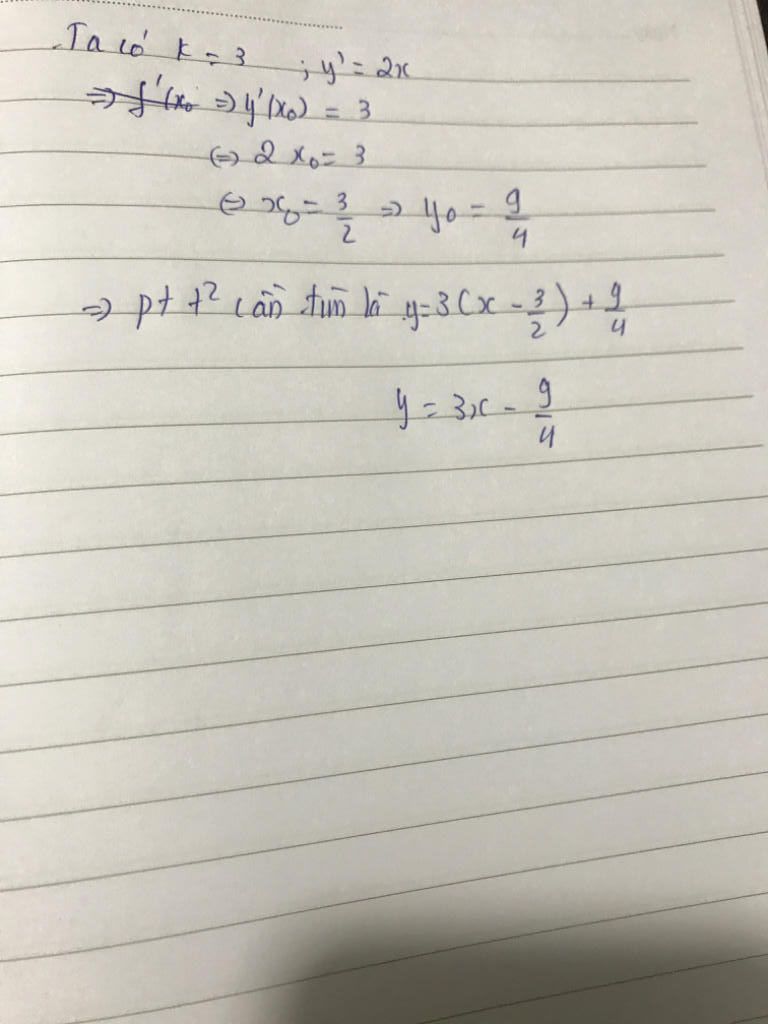 Ta có k = 3 ; y' = 2x
=> f'(x₀ => y'(x₀) = 3
<=> 2 x₀ = 3
<=> x₀ = 3/2 => y₀ = 9/4
=> pt t² cần tìm là y = 3(x - 3/2) + 9/4
y = 3x - 9/4